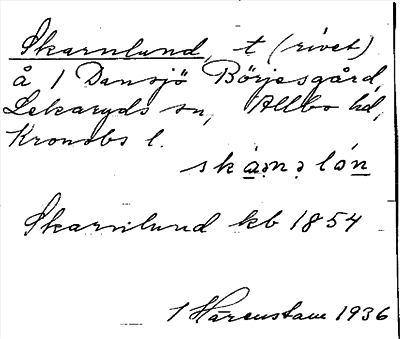 Skarnlund, t (rivet)
å 1 Dansjö Börjesgård,
Lekaryds sn, Allbo hd,
Kronobs l.
Skarnlund kb 1854
1 Härenstam 1936